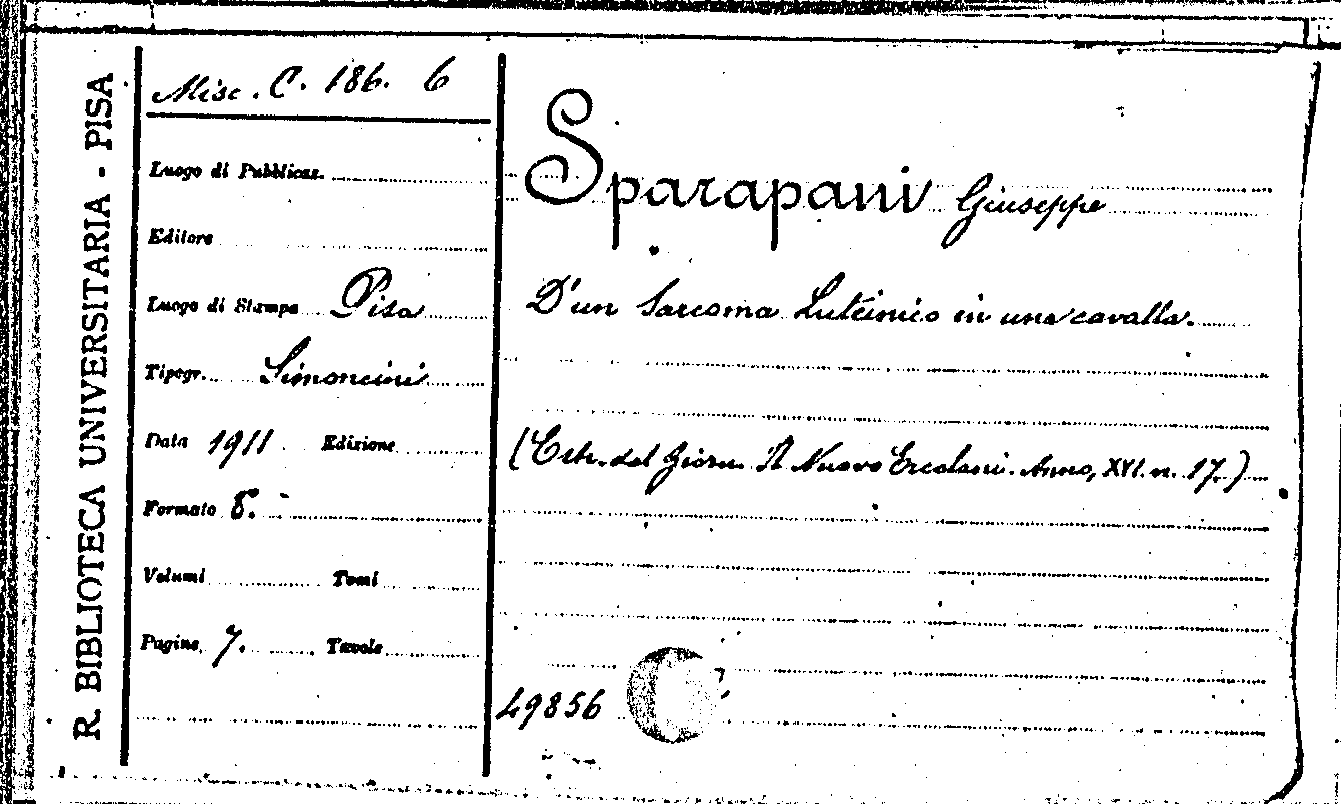 R. BIBLIOTECA UNIVERSITARIA - PISA
Misc. C. 186. 6
Luogo di Pubblicaz.
Editore
Luogo di Stampa Pisa
Tipogr. Simoncini
Data 1911 Edizione
Formato 8.
Volumi Tomi
Pagine 7. Tavole
Sparapani Giuseppe
D'un Sarcoma Luteinico in una cavalla.
(Estr. dal Giorn. Il Nuovo Ercolani. Anno, XVI. n. 17.)
49856